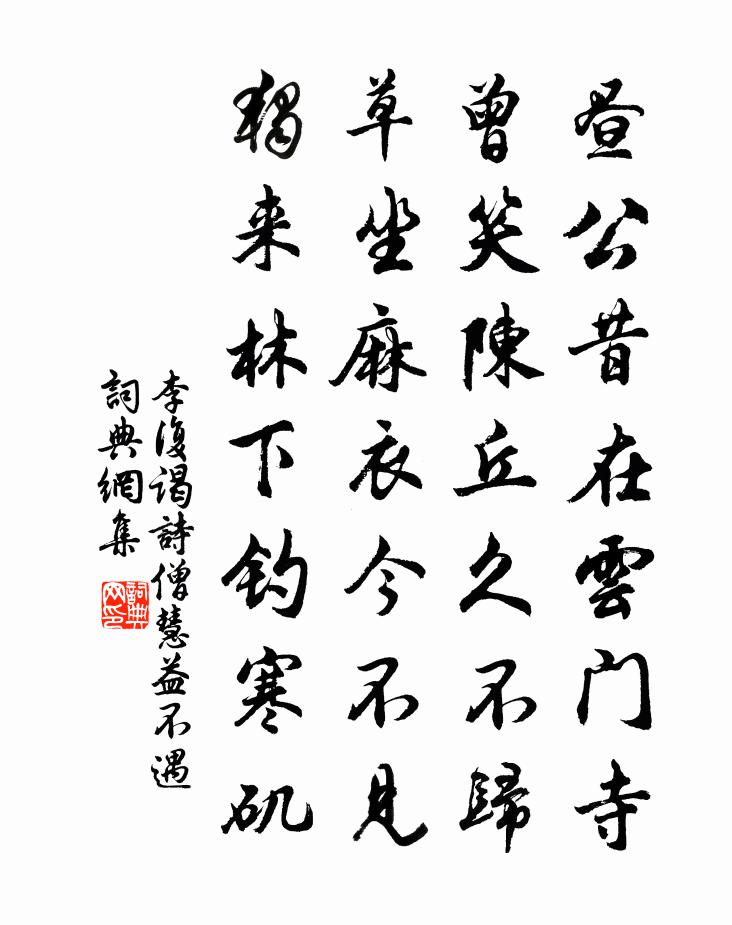 昼公昔在雲门寺
曾笑陳丘久不歸
草坐麻衣今不見
獨来林下釣寒矶
李復謁詩僧慧益不遇
詞典網集
詞典网印